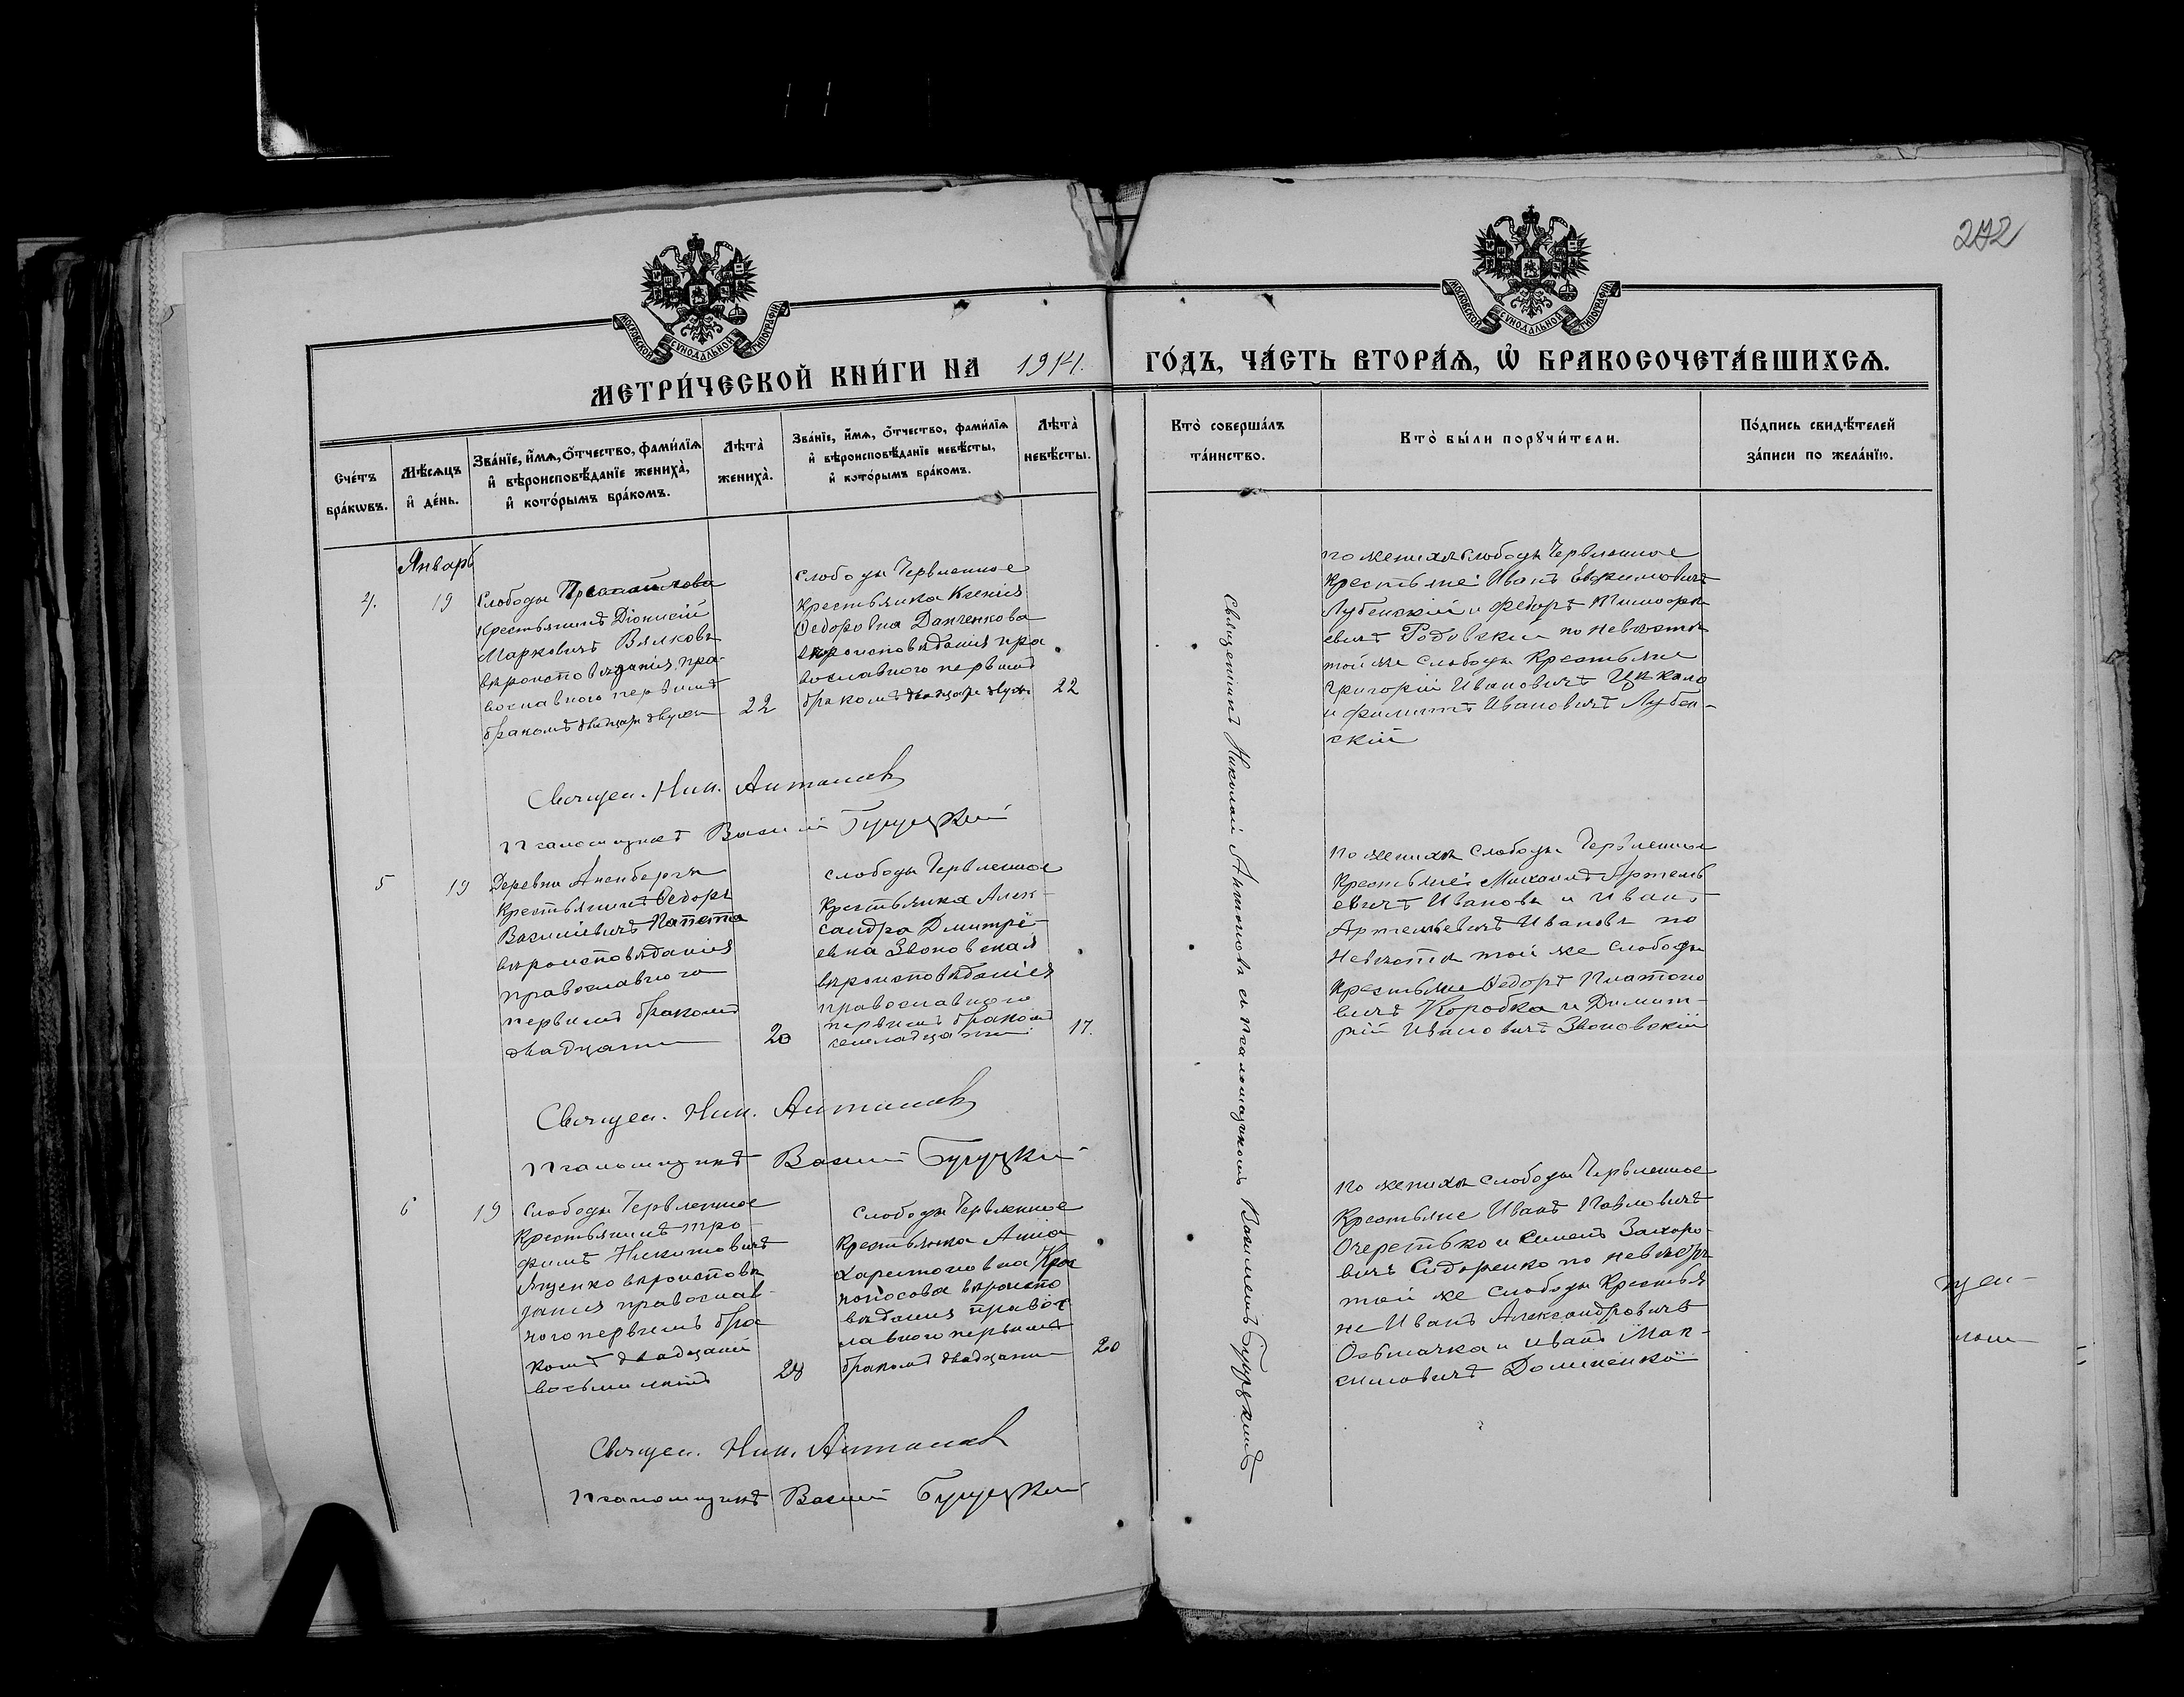 272
МОСКОВСКОЙ СѴНОДАЛЬНОЙ ТИПОГРАФІИ
МОСКОВСКОЙ СѴНОДАЛЬНОЙ ТИПОГРАФІИ
МЕТРИ́ЧЕСКОЙ КНИ́ГИ НА 1914. ГО́ДЪ, ЧА́СТЬ ВТОРА́Я, Ѡ҆ БРАКОСОЧЕТА́ВШИХСЯ.
Сче́тъ бра́кѡвъ.
Мѣ́сяцъ и҆ де́нь.
Зва́нїе, и҆́мя, ѻ҆́тчество, фами́лїя
и҆ вѣроисповѣ́данїе жениха̀,
и҆ кото́рымъ бра́комъ.
Лѣта̀ жениха̀.
Зва́нїе, и҆́мя, ѻ҆́тчество, фами́лїя
и҆ вѣроисповѣ́данїе невѣ́сты,
и҆ кото́рымъ бра́комъ.
Лѣта̀ невѣ́сты.
Кто̀ соверша́лъ та́инство.
Кто̀ бы́ли порꙋчи́тели.
По́дпись свидѣ́телей за́писи по жела́нїю.
Январь
4.
19
Слободы
крестьянинъ Діонисій
Марковичъ Вялковъ
вѣроисповѣданія пра-
вославнаго первымъ
бракомъ двадцати двухъ
22
слободы Червленное
крестьянка Ксенія
Ѳедоровна Данченкова
вѣроисповѣданія пра
вославного первымъ
бракомъ двадцати двухъ
22
по женихѣ слободы Червленное
крестьяне: Иванъ Евфимовичъ
Лубенскій и Федоръ Тимофе
евичъ по невѣстѣ
той же слободы крестьяне
Григорій Ивановичъ Цукало
и Филиппъ Ивановичъ Лубен-
скій
Священ. Ник. Антонов
Псаломщикъ Василій Бугуцкий
5
19
Деревни
крестьянинъ Ѳедоръ
Васильевичъ
вѣроисповѣданія
православного
первымъ бракомъ
двадцати
20
слободы Червленное
крестьянка Алек-
сандра Дмитрі-
евна Звоновская
вѣроисповѣданія
православного
первымъ бракомъ
семнадцати
17.
по женихѣ слободы Червленное
крестьяне: Михаилъ Артемь
евичъ Ивановъ и Иванъ
Артемьевичъ Ивановъ по
невѣстѣ той же слободы
крестьяне Ѳедоръ Платоно
вичъ Коробка и Димит-
рій Ивановичъ Звоновскій
Священ. Ник. Антонов
Псаломщикъ Василій Бугуцкий
6
19
Слободы Червленное
крестьянинъ Тро
фимъ Никитовичъ
Яценко вѣроисповѣ
данія православ-
ного первымъ бра
комъ двадцати
восьми лѣтъ
28
слободы Червленное
крестьянка Анна
Харитоновна Кри
воносова вѣроиспо
вѣданія правос
лавного первымъ
бракомъ двадцати
20
по женихѣ слободы Червленное
Крестьяне Иванъ Павловичъ
Очеретько и Семенъ Захаро-
вичъ Сидоренко по невѣстѣ
той же слободы Крестья
не Иванъ Александровичъ
Осьмачка и Иванъ Мак-
симовичъ Доминенко
Священ. Ник. Антонов
Псаломщикъ Василій Бугуцкий
Священникъ Николай Антоновъ съ псаломщикомъ Василіемъ Бугуцкимъ